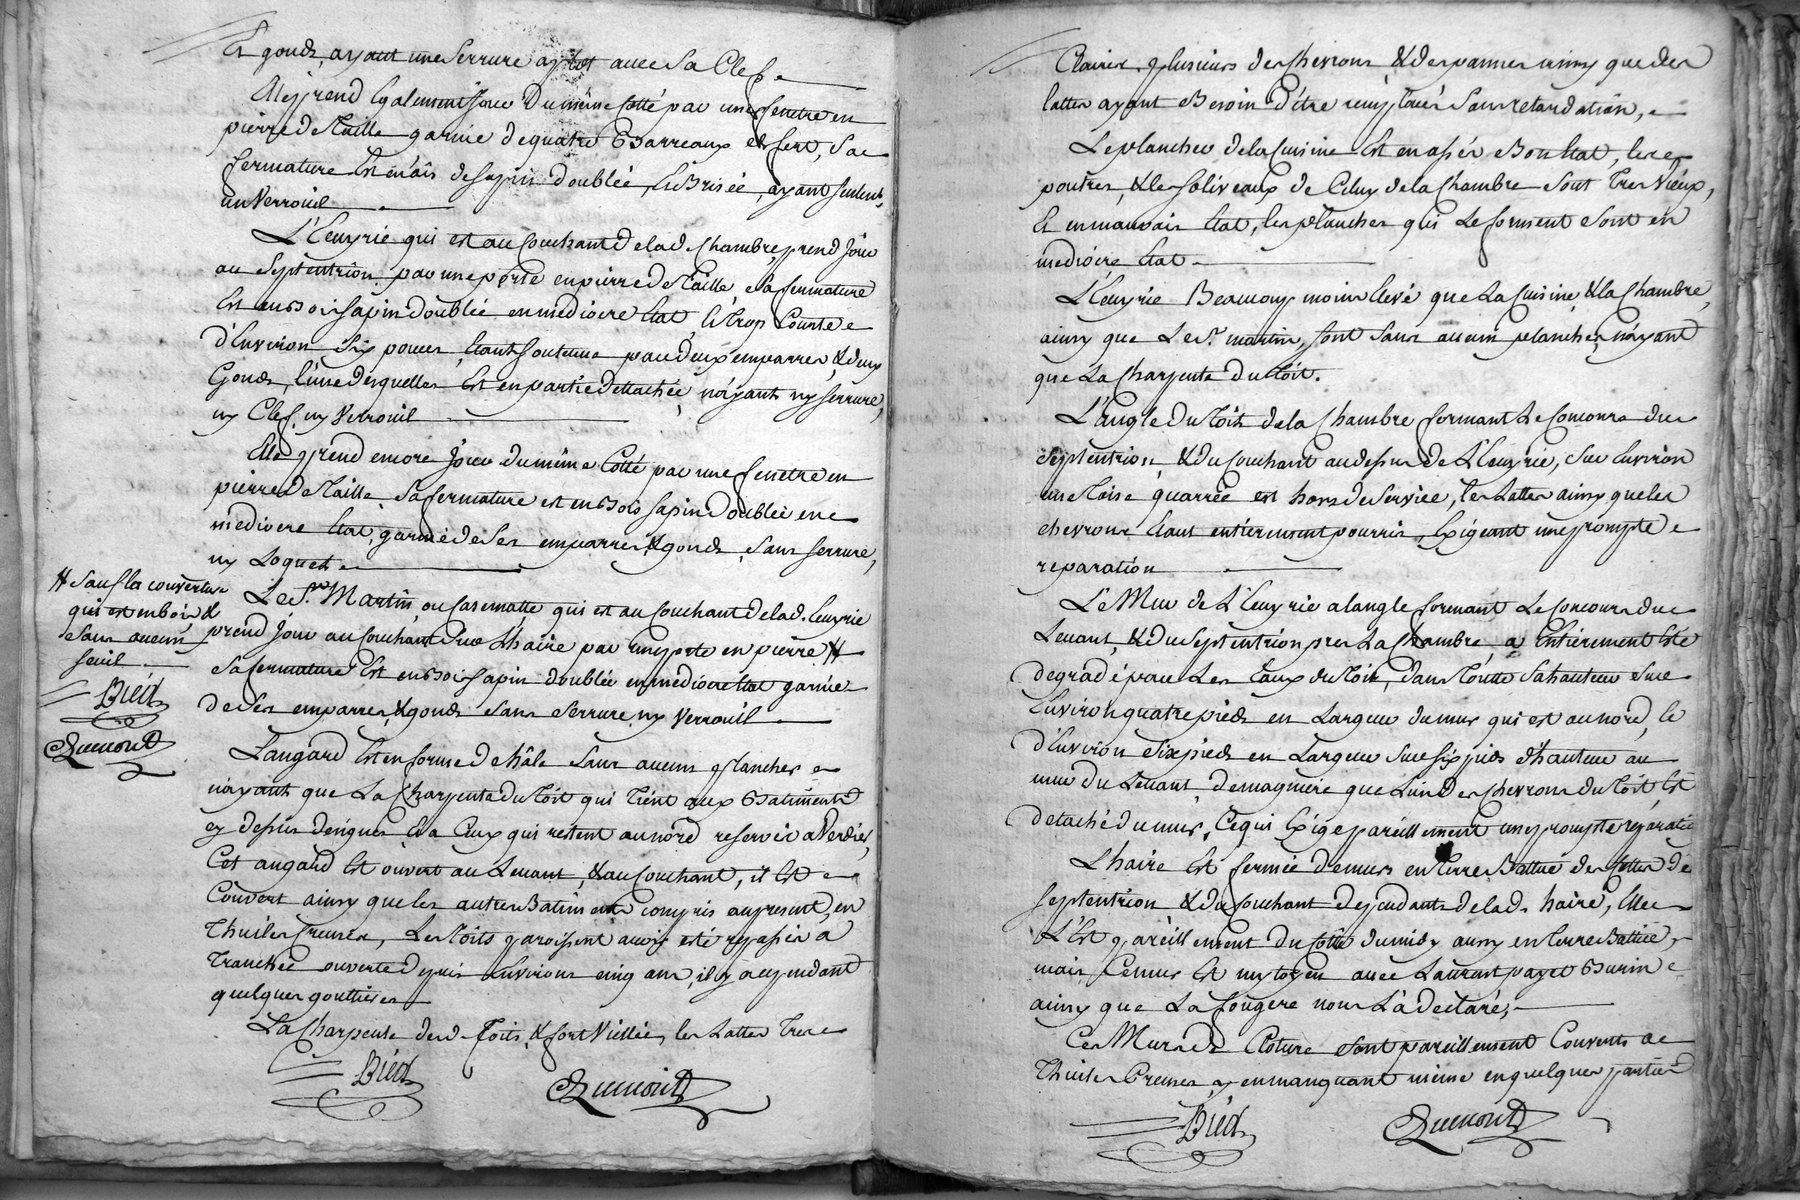 Et gonds, ayant une serrure aplot avec sa Clef.
Elle prend également Jour du même Cotté par une fenetre en
pierre de Taille garnie de quatre Barreaux de fert, Sa
fermature Est en ais de sapin doublée, Et Brisée, ayant seulemt.
un Verrouil
L'Ecuyrie qui est au Couchant de lad. Chambre, prend Jour
au Septentrion par une porte en pierre de Taille sa fermature
Est en Bois sapin doublée en mediocre Etat, Et trop Courte
d'Environ Six pouces, Etant soutenue par deux emparres, & deux
Gonds, l'une desquelles Est en partie dettachée, n'ayant ny serrure,
ny Clef, ny Verrouil
Elle prend encore Jour du même Cotté par une fenetre en
pierre de Taille sa fermature est en Bois sapin doublée en
mediocre Etat, garnie de ses emparres & gonds, sans serrure,
ny Loquet
# sauf la couverture
qui est en bois &
sans aucun
seuil
Bied
Dumont
Le Sr. Martin ou Casematte qui est au Couchant de lad. Ecuyrie
prend Jour au Couchant sur L'haire par une porte en pierre #
sa fermature Est en Bois sapin doublée en mediocre Etat garnie
de ses emparres & gonds sans serrure ny Verrouil
L'angard Est en forme de hâle sans aucuns planchers
n'ayant que La Charpente du Toit qui Tient aux Batiments
cy dessus designés Et a Ceux qui restent au nord reservés a Verdier,
Cet angard Est ouvert au Levant, & au Couchant, il Est
Couvert ainsy que les autres Batiments compris au present, en
Thuiles Creuses, Les Toits paroissent avoir eté repassés a
Tranchée ouverte depuis Environs cinq ans, il y a cependant
quelques gouttieres
La Charpente desd. Toits, & fort Viellie, les Lattes Tres
Bied
Dumont
Claires, plusieurs des Chevrons, & des pannes ainsy que des
lattes ayant Besoin d'étre remplacés sans retardation,
Le plancher de la Cuisine Est en assés Bon Etat, les
poutres, & les soliveaux de Celuy de la Chambre sont Tres Vieux,
Et en mauvais Etat, les planches qui Le forment sont en
mediocre Etat
L'Ecuyrie Beaucoup moins Elevé que La Cuisine & la Chambre,
ainsy que Le Sr. martin, sont sans aucun plancher, n'ayant
que La Charpente du Toit.
L'angle du Toit de la Chambre formant Le Concours du
Septentrion, & du Couchant au dessus de L'Ecuyrie, sur Environ
une Toise quarrée est hors de service, les Lattes ainsy que les
chevrons Etant entierement pourris, Exigeant une prompte
reparation
Le Mur de L'Ecuyrie a langle formant Le Concours du
Levant, & du Septentrion pres La Chambre a Entierement Eté
degradé par Les Eaux du Toit, dans Toutte sa hauteur sur
Environ quatre pieds en Largeur du mur qui est au nord, &
d'Environ Six pieds en Largeur sur six pieds d'hauteur au
mur du Levant, de magniere que L'un des Chevrons du Toit, Est
detaché du mur, Ce qui Exige pareillement une prompte reparation
L'haire Est fermée de murs en Terre Battue des Cottés de
Septentrion & du Couchant dependants de lad. haire, Elle
L'Est pareillement du Cotté du midy aussy en terre Battue,
mais Ce mur Est mytoyen avec Laurent payet Burin
ainsy que La fougere nous L'a declaré,
Ces Murs de Cloture sont pareillement Couverts de
Thuiles Creuses, y en manquant même en quelques parties
Bied
Dumont